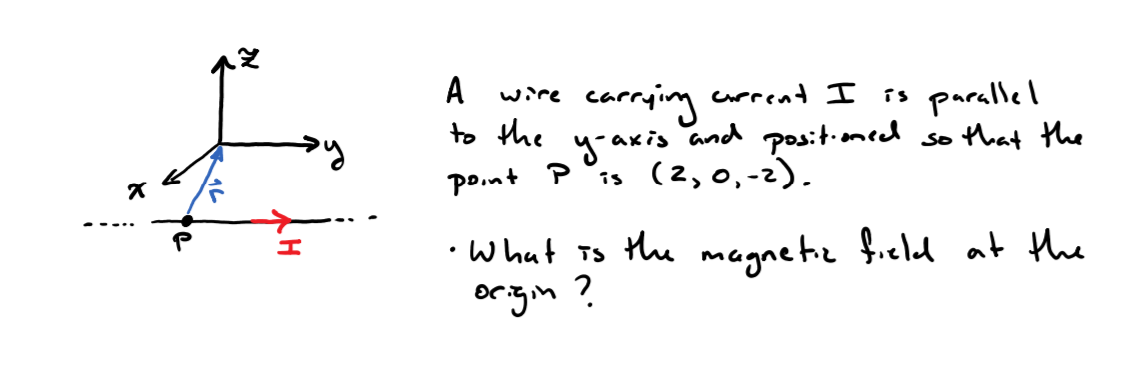 z
y
x
r
P
I
A wire carrying current I is parallel
to the y-axis and positioned so that the
point P is (2, 0, -2).
• What is the magnetic field at the
origin?